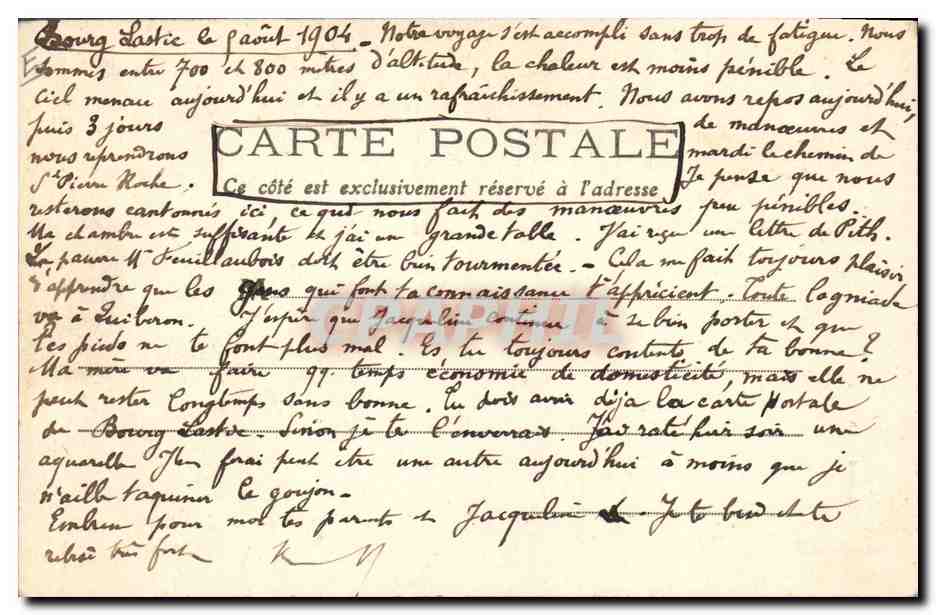 Bourg Lastic le 5 août 1904 - Notre voyage s'est accompli sans trop de fatigue. Nous
sommes entre 700 et 800 mètres d'altitude, la chaleur est moins pénible. Le
ciel menace aujourd'hui et il y a un rafraîchissement. Nous avons repos aujourd'hui,
puis 3 jours de manœuvres et
CARTE POSTALE
nous reprendrons mardi le chemin de
Ce côté est exclusivement réservé à l'adresse
St Pierre Roche. Je pense que nous
resterons cantonnés ici, ce qui nous fait des manœuvres peu pénibles.
Ma chambre est suffisante et j'ai une grande table. J'ai reçu une lettre de Pith.
La pauvre Mme Feuillaubois doit être bien tourmentée. - Cela me fait toujours plaisir
d'apprendre que les gens qui font ta connaissance t'apprécient. Toute la gniade
va à Quiberon. J'espère que Jacqueline continue à se bien porter et que
tes pieds ne te font plus mal. Es tu toujours contente de ta bonne?
Ma mère va faire qq. temps économie de domesticité, mais elle ne
peut rester longtemps sans bonne. Tu dois avoir déja la carte postale
de Bourg Lastic. Sinon je te l'enverrais. J'ai raté hier soir une
aquarelle J'en ferai peut être une autre aujourd'hui à moins que je
n'aille taquiner le goujon -
Embrasse pour moi tes parents et Jacqueline. Je te bise et te
rebise très fort